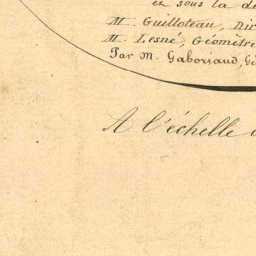 et sous la di
M. Guilloteau, Dir
M. Lesné, Géomètre
Par M. Gaboriaud, Gé
A l'échelle d